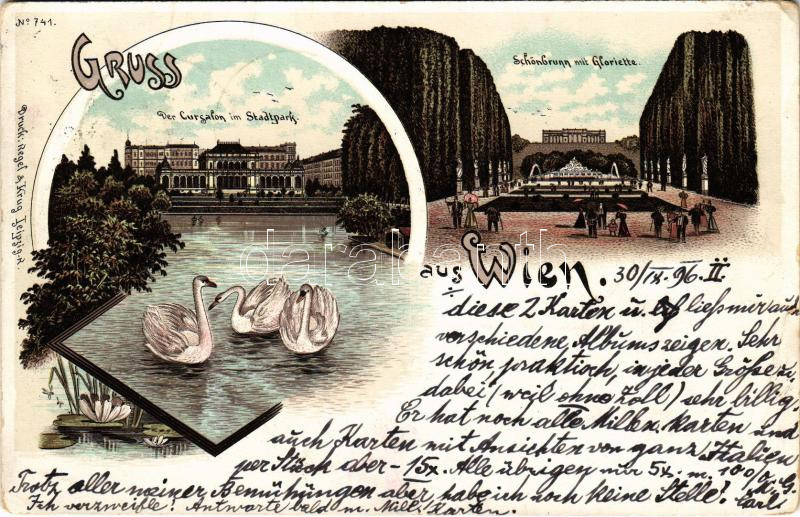 No 741.
GRUSS
Der Cursalon im Stadtpark.
Schönbrunn mit Gloriette.
Druck: Regel & Krug Leipzig-R.
darabanth
aus Wien.
30/IX. 96. II
diese 2 Karten u. ließ mir auch
verschiedene Albums zeigen. Sehr
schön praktisch, in jeder Größe zu
dabei (weil ohne Zoll) sehr billig.
Er hat noch alle Millen. Karten und
auch Karten mit Ansichten von ganz Italien
per Stück aber -15x. Alle übrigen nur 5x. m. 100/0.
Trotz aller meiner Bemühungen aber habe ich noch keine Stelle! Carl
Ich verzweifle! Antworte bald m. Mill. Karten.